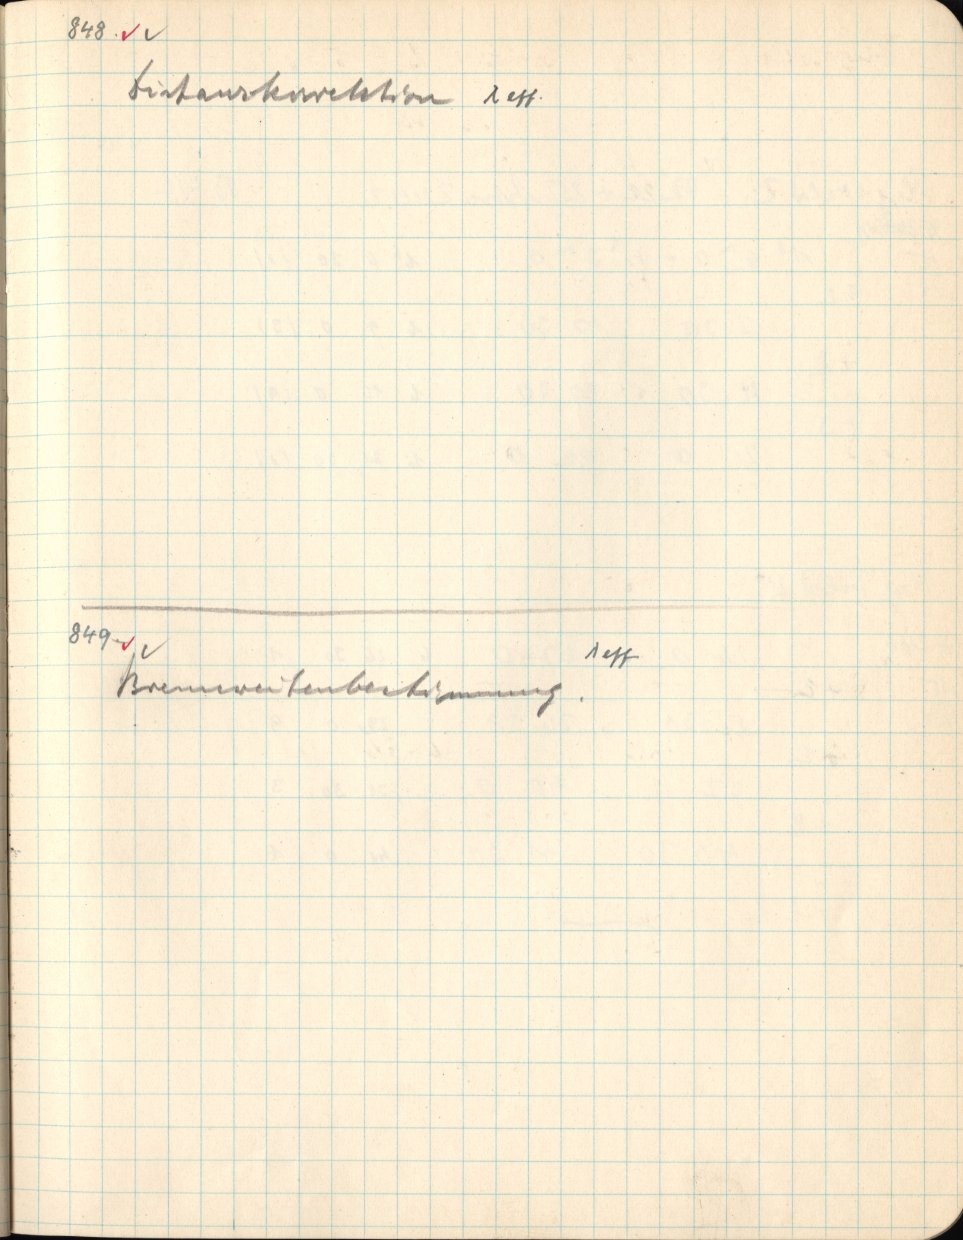 848. ✓ ✓
Distanzkorrektion λ eff.
849. ✓ ✓
λ eff
Brennweitenbestimmung.